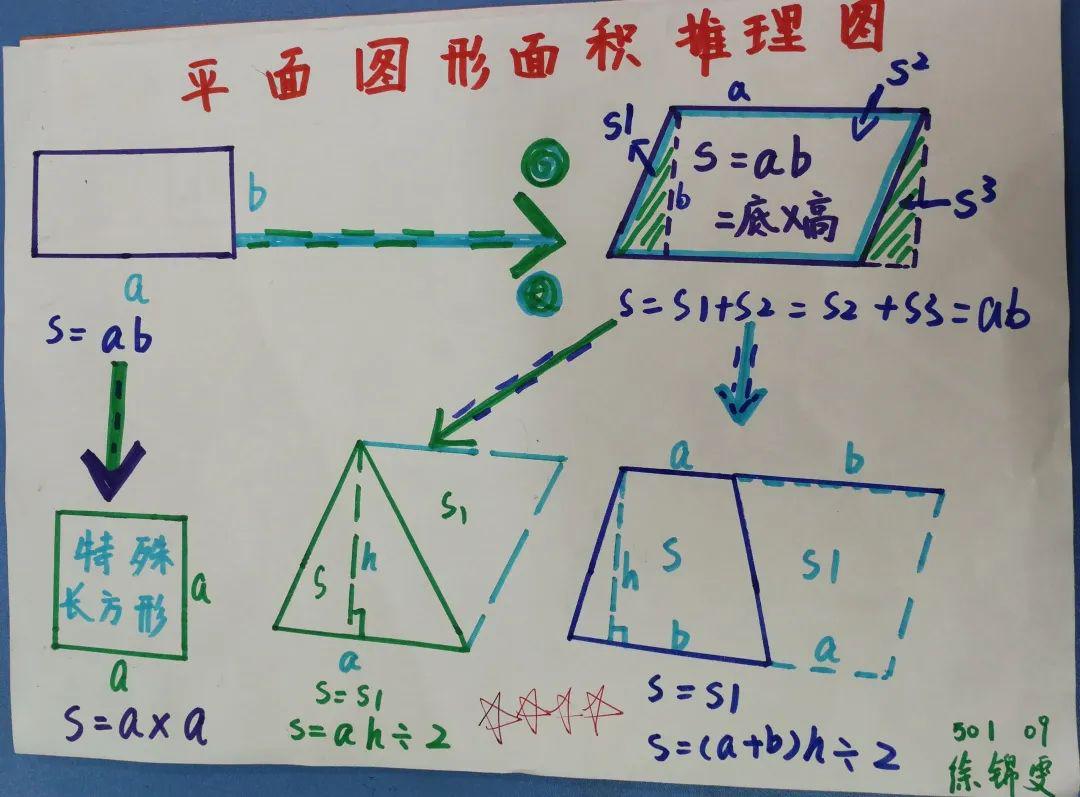 平面图形面积推理图
b
a
S=ab
a
S1
S2
S=ab
b
=底×高
S3
S=S1+S2=S2+S3=ab
特殊
长方形
a
a
S=a×a
S1
S
h
a
S=S1
S=ah÷2
a
b
S
S1
h
b
a
S=S1
S=(a+b)h÷2
501 09
徐锦雯